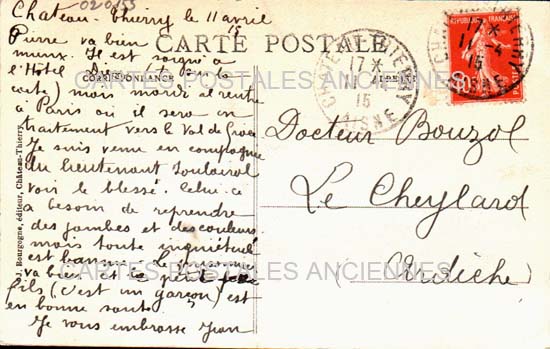 020153
Chateau-Thierry le 11 avril
15
Pierre va bien
mieux. Il est soigné à
l'Hôtel Dieu (là la
carte) mais mardi il rentre
à Paris où il sera en
traitement vers le Val de Grace
Je suis venu en compagnie
du lieutenant
voir le blessé. Celui-ci
a besoin de reprendre
des jambes et des couleurs
mais toute inquiétude
est bannie. La maman
va bien et le petit
fils (c'est un garçon) est
en bonne santé.
Je vous embrasse Jean
CARTE POSTALE
CORRESPONDANCE
ADRESSE
J. Bourgogne, éditeur, Château-Thierry
CHATEAU-THIERRY
17 *
11-4
15
AISNE
CHATEAU-THIERRY
17 *
11-4
15
AISNE
REPUBLIQUE FRANÇAISE
10
Docteur Bouzol
Le Cheylard
(Ardèche)
CARTES POSTALES ANCIENNES
CARTES POSTALES ANCIENNES